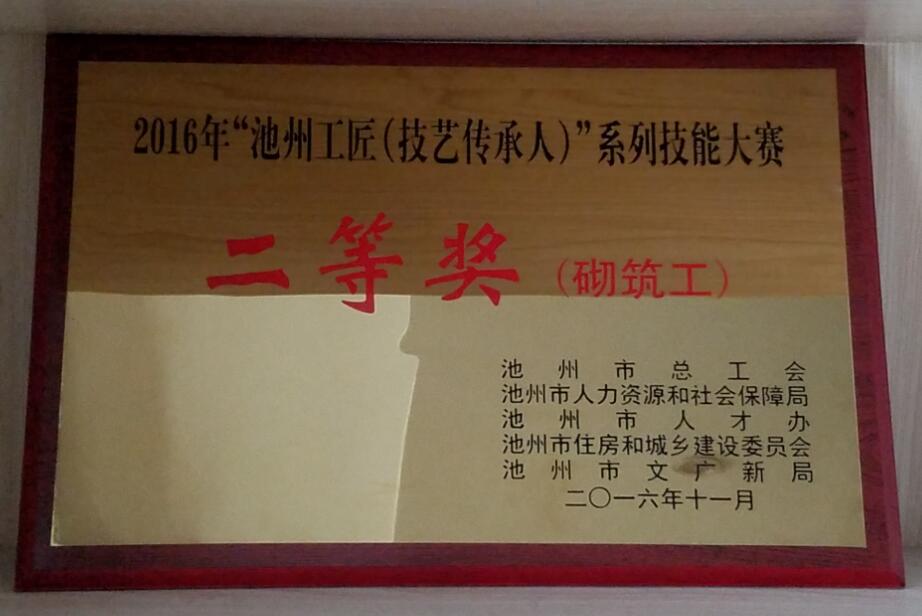 2016年“池州工匠(技艺传承人)”系列技能大赛
二等奖(砌筑工)
池州市总工会
池州市人力资源和社会保障局
池州市人才办
池州市住房和城乡建设委员会
池州市文广新局
二〇一六年十一月